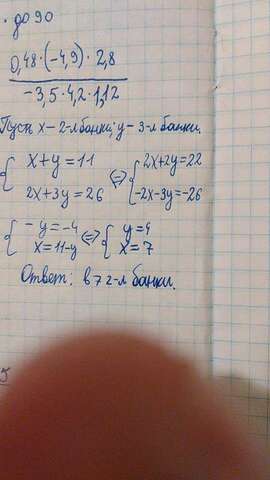 · до 90
0,48·(-4,9)·2,8
-3,5·4,2·1,12
Пусть x – 2-л банки, y – 3-л банки.
{ x+y=11 <=> { 2x+2y=22
2x+3y=26 -2x-3y=-26
{ -y=-4 <=> { y=4
x=11-y x=7
Ответ: в 7 2-л банки.
5